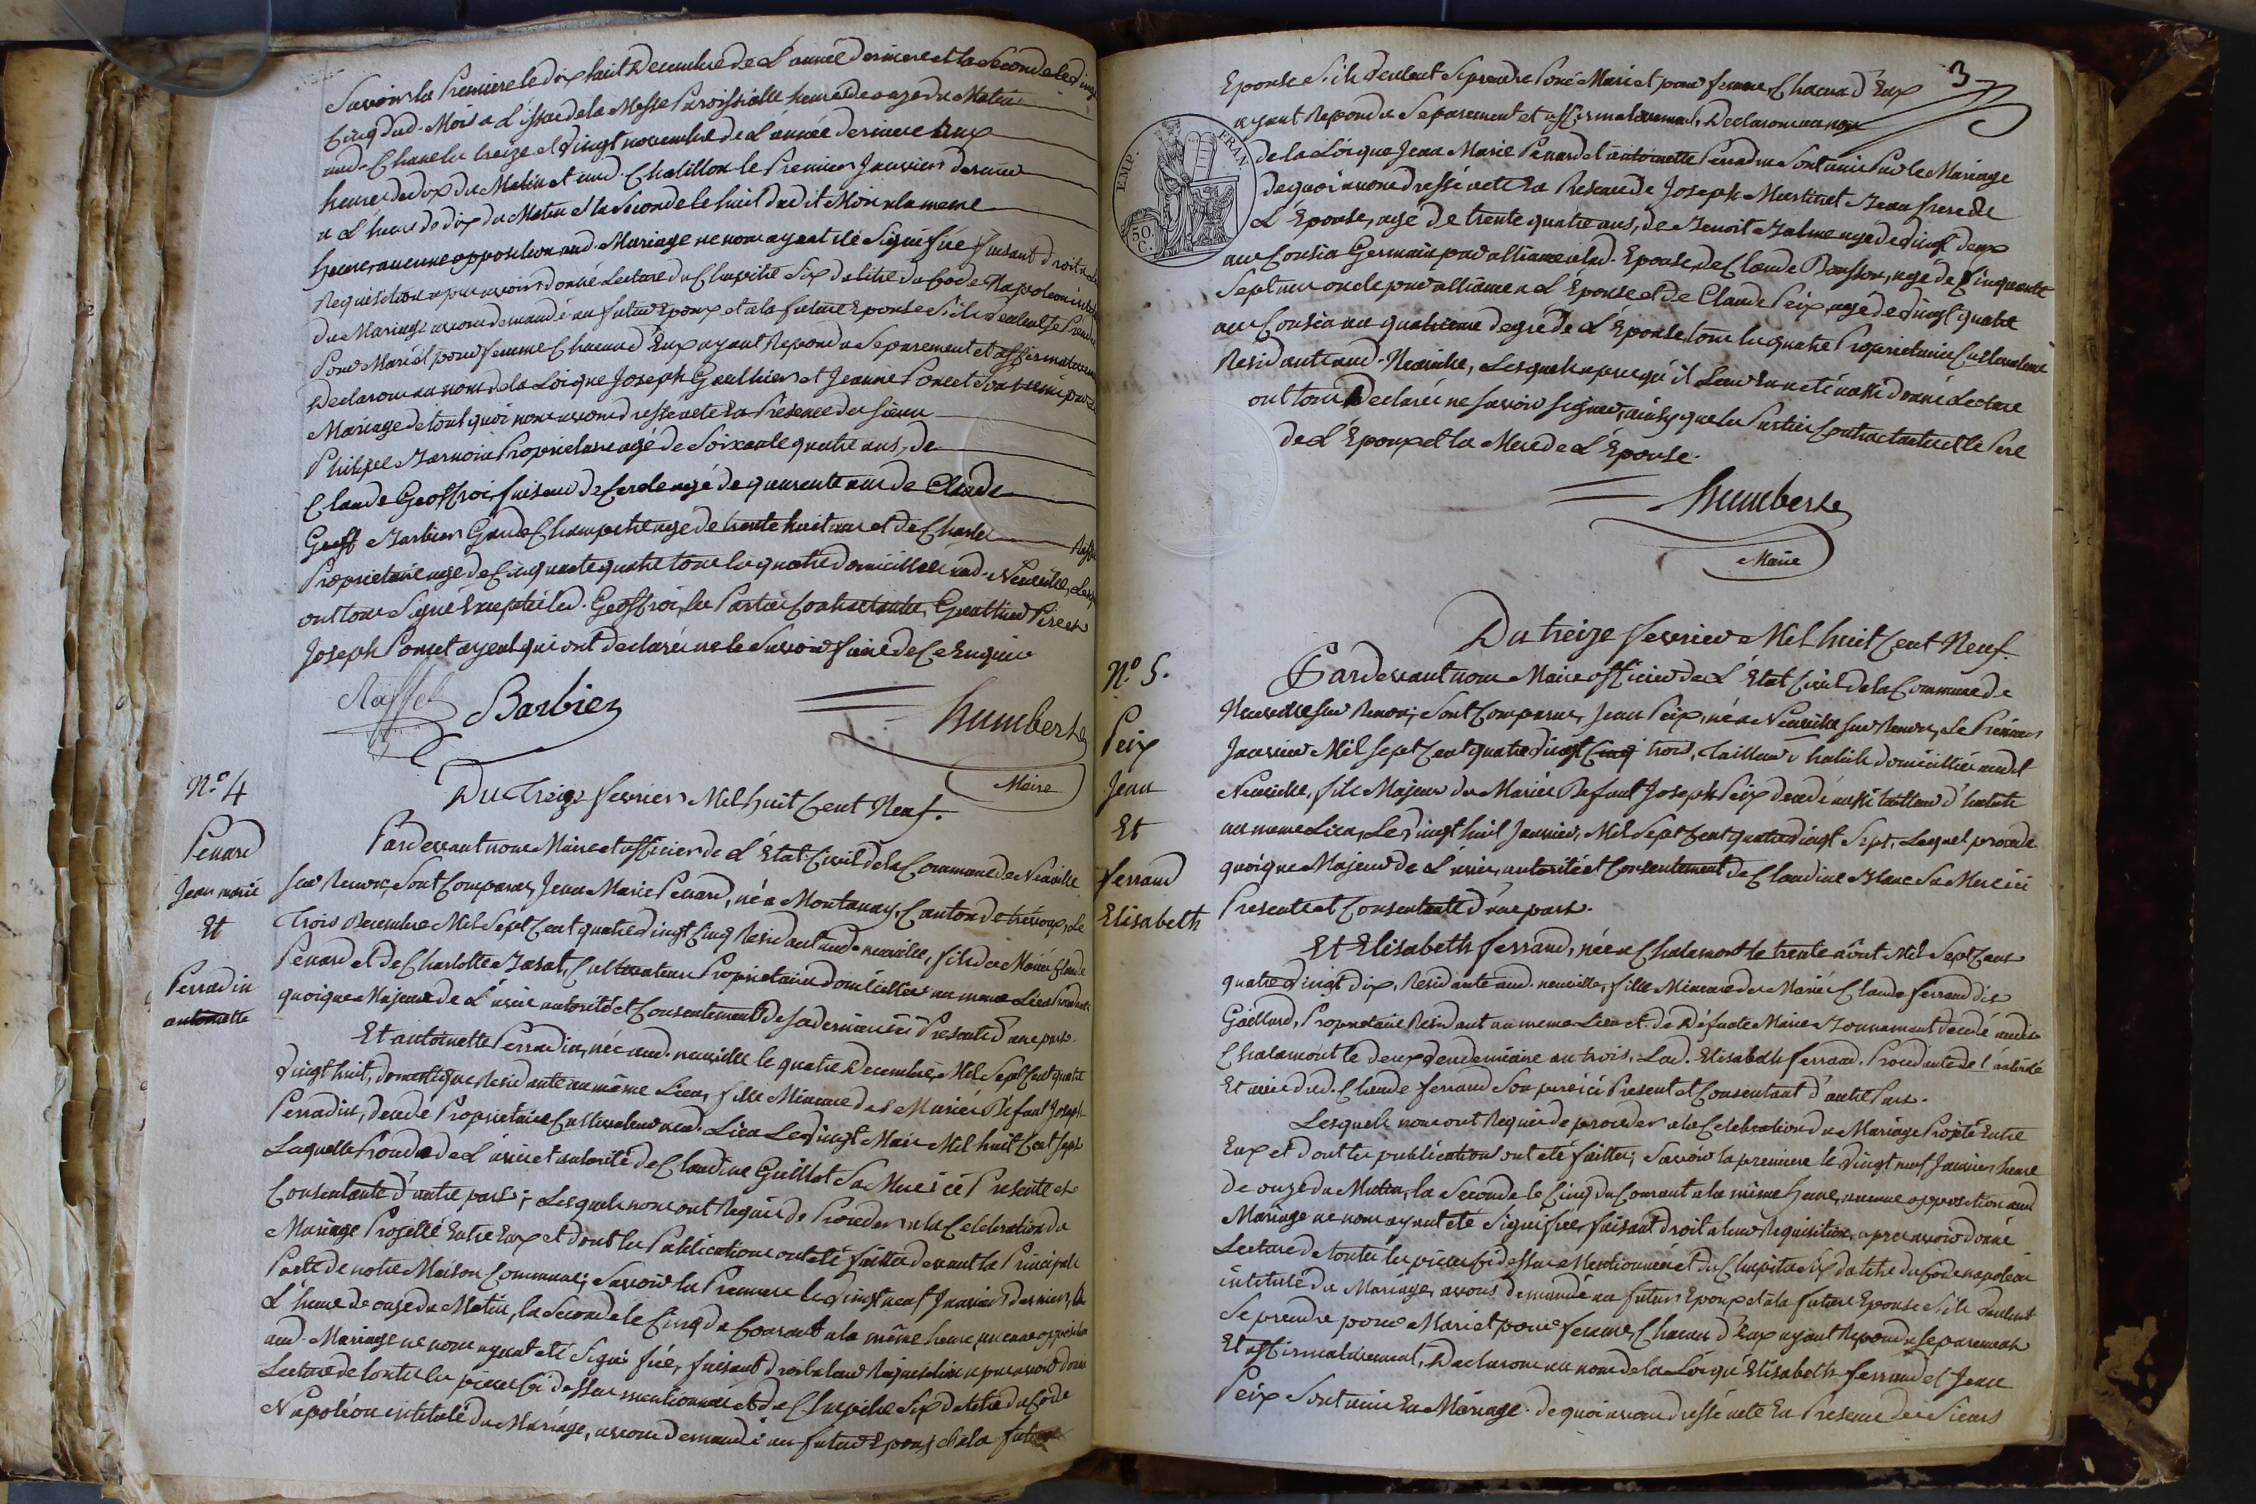 Savoir la Premiere le dix huit Decembre de L'année derniere et la Seconde le vingt
Cinq dud. Mois a L'issue de la Messe Paroissialle heure de onze du Matin
aud. les treize et Vingt novembre de L'année derniere aux
heures de dix du Matin et aud. Chatillon le Premier Janvier dernier
a L'heure de dix du Matin et la Seconde le huit dudit Mois a la meme
heure, aucune opposition aud. Mariage ne nous ayant été Signifiée faisant droit a leur
Requisition apres avoir donné Lecture du Chapitre Six du titre du Code Napoleon intitulé
du Mariage avons demandé au futur Epoux et a la future Epouse S'ils veulent Se Prendre
Pour Mari et pour femme Chacun d'Eux ayant Repondu Separement et affirmativement
Declarons au nom de la Loi que Joseph Gaulthier et Jeanne Poncet Sont unis par le
Mariage de tout quoi nous avons dressé acte En Presence des Sieurs
Philipe Proprietaire agé de Soixante quatre ans, de
Claude Geoffroi, faiseur de Cercle agé de quarente ans de Claude
Geoff Barbier Garde Champetre agé de trente huit ans et de Charles Raffet
Proprietaire agé de Cinquante quatre tous les quatre domiciliés aud. Neuville, Lesquels
ont tous Signé Excepté led. Geoffroi, les Parties Contractantes, Gaulthier Pere et
Joseph Poncet ayeul qui ont declaré ne le Savoir faire de Ce Enquis
Raffet Barbier Humbert
Maire
N.º 4
Penard
Jean marie
Et
Perradin
antoinette
Du Treize fevrier Mil huit Cent Neuf.
Pardevant nous Maire et officier de L'Etat Civil de la Commune de Neuville
Sur Renon, Sont Comparus, Jean Marie Penard, né a Montanay, Canton de trevoux, Le
Trois Decembre Mil Sept Cent quatre Vingt Cinq Residant aud. neuville, fils des Mariés Claude
Penard et de Charlotte Cultivateurs Proprietaires domiciliés au meme Lieu Procedant
quoique Majeur de L'avis autorité et Consentement de Sa derniere ici Presente d'une part.
Et antoinette Perradin, née aud. neuville le quatre Decembre Mil Sept Cent quatre
Vingt huit, domestique Residante au même Lieu, fille Mineure des Mariés Défunt Joseph
Perradin, decedé Proprietaire Cultivateur aud. Lieu Le Vingt Mars Mil huit Cent Sept
Laquelle Procede de L'avis et autorité de Claudine Guillot Sa Mere ici Presente et
Consentante d'autre part; Lesquels nous ont Requis de Proceder a la Celebration du
Mariage Projetté Entre Eux et dont les Publications ont été faites devant la Principale
Porte de notre Maison Commune; Savoir la Premiere le Vingt neuf Janvier dernier, a
L'heure de onze du Matin, la Seconde le Cinq du Courant a la même heure, aucune opposition
aud. Mariage ne nous ayant été Signifiée, faisant droit a leur Requisition apres avoir donné
Lecture de toutes les pieces Ci dessus mentionnées et du Chapitre Six du titre du Code
Napoléon intitulé du Mariage, avons demandé au futur Epoux et a la future
3
Epouse S'ils veulent Se prendre Pour Mari et pour femme, Chacun d'Eux
ayant Repondu Separement et affirmativement, Declarons au nom
de la Loi que Jean Marie Penard et antoinette Perradin Sont unis Par le Mariage
de quoi avons dressé acte En Presence de Joseph Martinet frere de
L'Epouse, agé de trente quatre ans, de Benoit agé de vingt deux
ans Cousin Germain par alliance a lad. Epouse, de Claude Bousson, agé de Cinquante
Sept ans oncle par alliance a L'Epouse et de Claude Peix, agé de Vingt quatre
ans Cousin au quatrieme degré de L'Epouse, tous les quatre Proprietaires Cultivateurs
Residants aud. Neuville, Lesquels apres qu'il Leur En a été aussi donné Lecture
ont tous Declaré ne Savoir Signer, ainsy que les Parties Contractantes et le Pere
de L'Epoux et la Mere de L'Epouse.
Humbert
Maire
EMP. FRAN.
50. C.
N.º 5.
Peix
Jean
Et
ferrand
Elisabeth
Du treize fevrier Mil huit Cent Neuf.
Pardevant nous Maire officier de L'Etat Civil de la Commune de
Neuville Sur Renon; Sont Comparus, Jean Peix, né a Neuville Sur Renon, Le Premier
Janvier Mil Sept Cent quatre Vingt Cinq trois, Tailleur d'habit domicilié aud.
Neuville, fils Majeur des Mariés Defunt Joseph Peix decedé aussi tailleur d'habits
au meme Lieu, Le Vingt huit Janvier, Mil Sept Cent quatre Vingt Sept, Lequel procede
quoique Majeur de L'avis, autorité et Consentement de Claudine Blanc Sa Mere ici
Presente et Consentante d'une part.
Et Elisabeth ferrand, née a Chalamont le trente août Mil Sept Cent
quatre Vingt dix, Residante aud. neuville, fille Mineure des Mariés Claude ferrand dit
Gaillard, Proprietaire Residant au meme Lieu et de Défunte Marie decedée aud.
Chalamont le deux Vendemiaire an trois, Lad. Elisabeth ferrand. Procedante de l'autorité
Et avis dud. Claude ferrand Son pere ici Present et Consentant d'autre Part.
Lesquels nous ont Requis de proceder a la Celebration du Mariage Projeté Entre
Eux et dont les publications ont été faittes; Savoir la premiere le Vingt neuf Janvier heure
de onze du Matin, la Seconde le Cinq du Courant a la même heure, aucune opposition aud.
Mariage ne nous ayant été Signifiée, faisant droit a leur Requisition, apres avoir donné
Lecture de toutes les pieces Ci dessus Mentionnées et du Chapitre Six du titre du Code napoléon
intitulé du Mariage, avons demandé au futur Epoux et a la future Epouse S'ils veulent
Se prendre pour Mari et pour femme, Chacun d'Eux ayant Repondu Separement
Et affirmativement, Declarons au nom de la Loi qu'Elisabeth ferrand et Jean
Peix Sont unis En Mariage. de quoi avons dressé acte En Presence des Sieurs